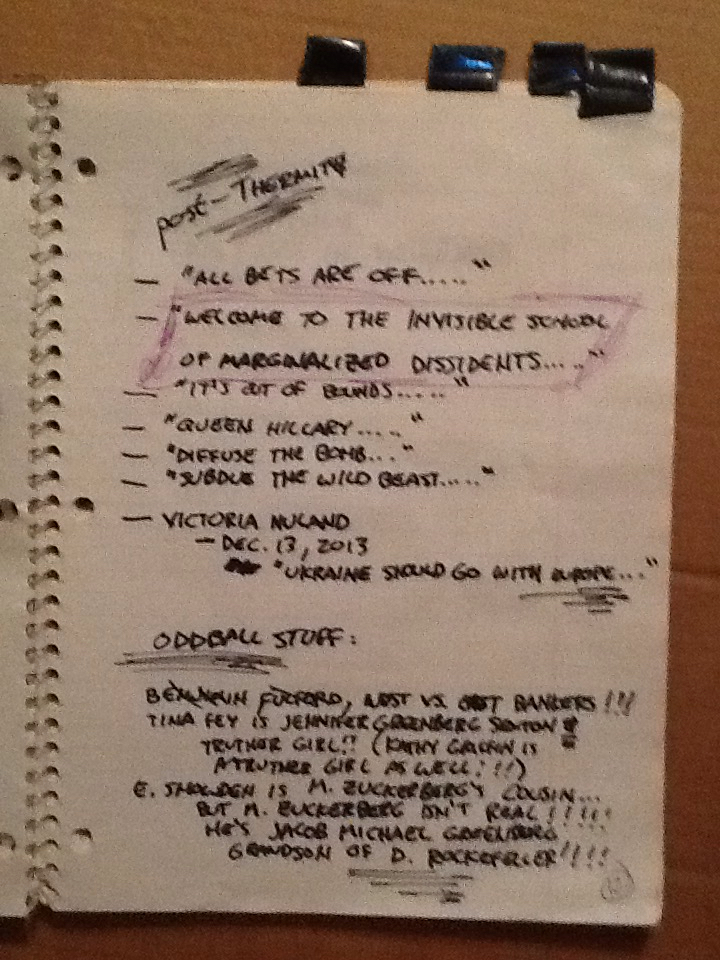 post-THERMITE
— "ALL BETS ARE OFF....."
— "WELCOME TO THE INVISIBLE SCHOOL
OF MARGINALIZED DISSIDENTS....."
— "IT'S OUT OF BOUNDS....."
— "QUEEN HILLARY....."
— "DIFFUSE THE BOMB..."
— "SUBDUE THE WILD BEAST....."
— VICTORIA NULAND
— DEC. 13, 2013
"UKRAINE SHOULD GO WITH EUROPE..."
ODDBALL STUFF:
BENJAMIN FULFORD, WEST VS. EAST BANKERS!!!
TINA FEY IS JENNIFER GREENBERG SEXTON &
TRUTHER GIRL!! (KATHY GRIFFIN IS
A TRUTHER GIRL AS WELL!!!)
E. SNOWDEN IS M. ZUCKERBERG'S COUSIN...
BUT M. ZUCKERBERG ISN'T REAL!!!!!
HE'S JACOB MICHAEL GREENBURG
GRANDSON OF D. ROCKEFELLER!!!!